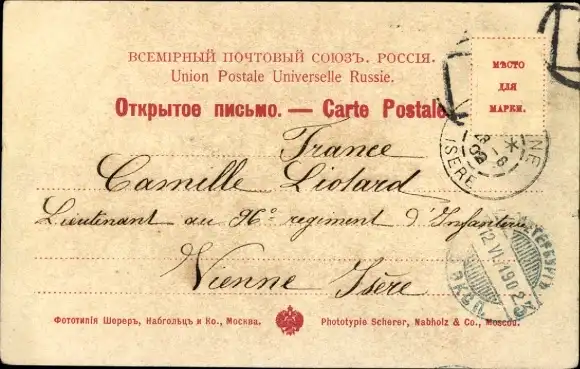 ВСЕМІРНЫЙ ПОЧТОВЫЙ СОЮЗЪ. РОССІЯ.
Union Postale Universelle Russie.
МѢСТО
ДЛЯ
МАРКИ.
Открытое письмо. — Carte Postale.
France
Camille Liotard
Lieutenant au 96e regiment d'Infanterie
Vienne Isère
NE
ISERE
12 VI 1902
Фототипія Шереръ, Набгольцъ и Ко., Москва.
Phototypie Scherer, Nabholz & Co., Moscou.